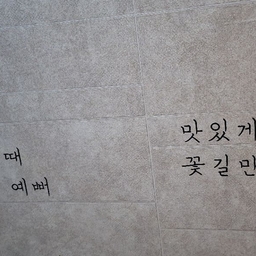 때
예뻐
맛있게
꽃길만